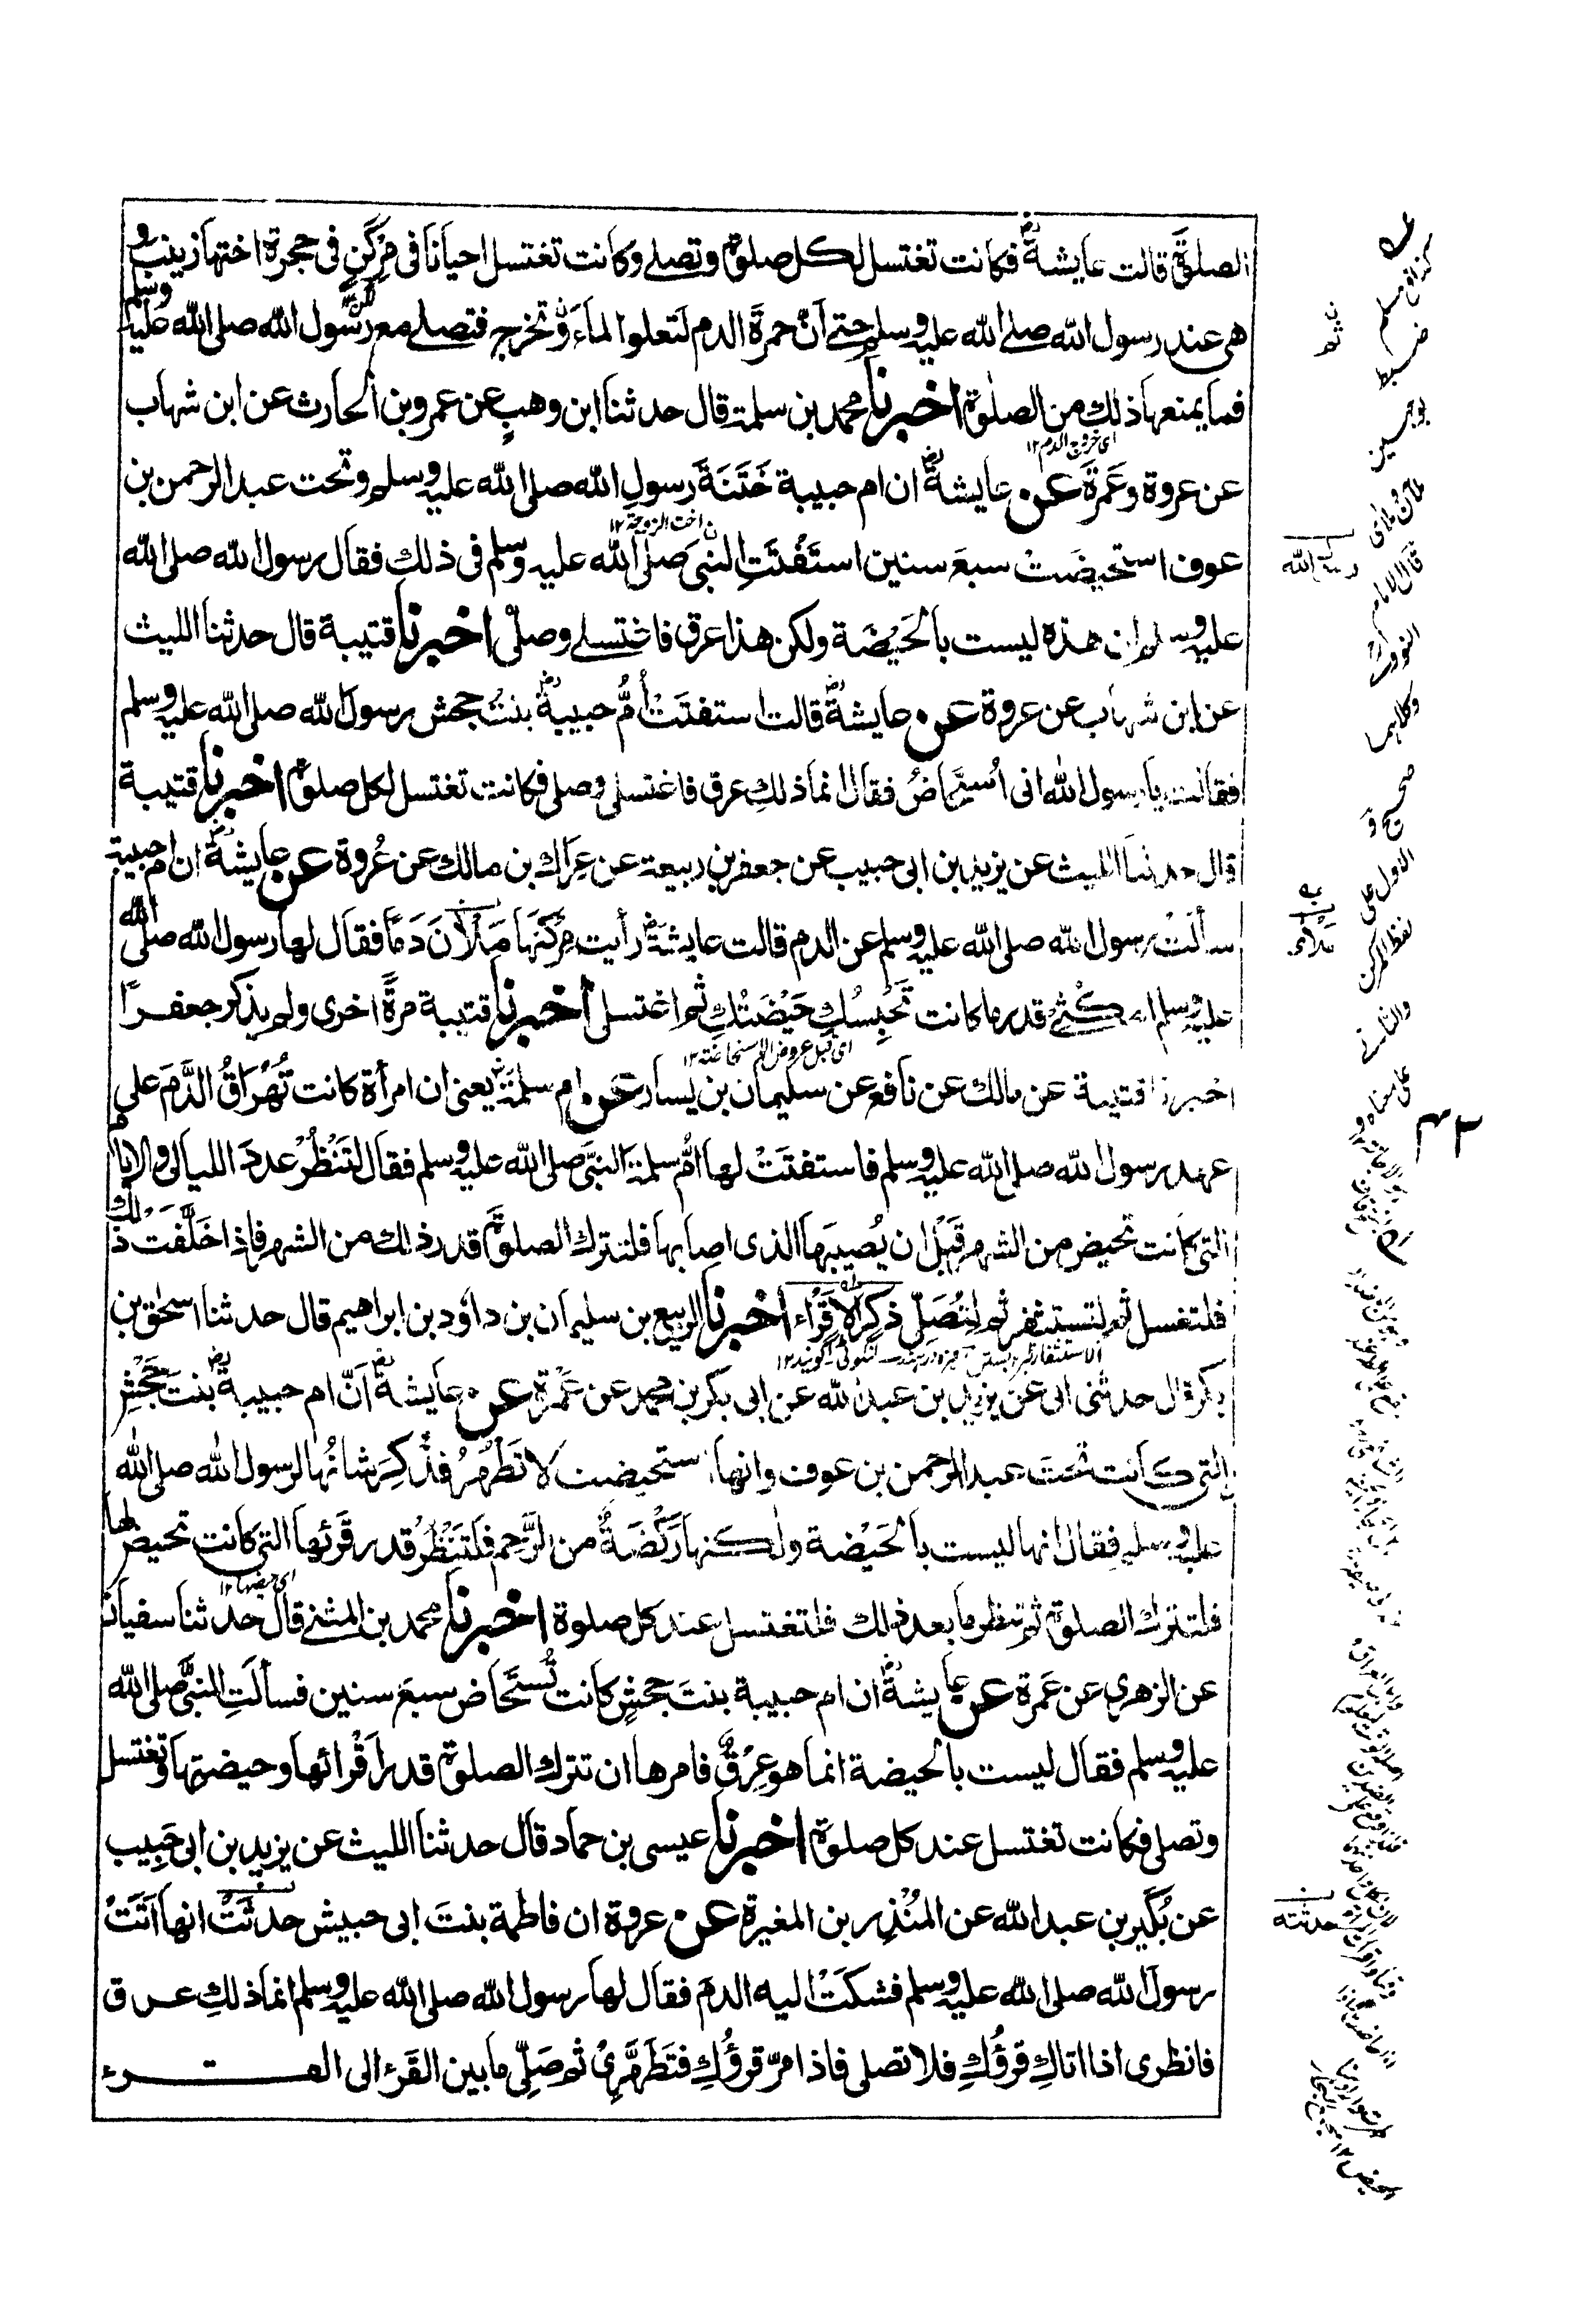 الصلوة قالت عايشة رض فكانت تغتسل لكل صلوة وتصلے وكانت تغتسل احيانا فى مِرْكَنٍ فى حجرة اختها زينب و
هى عند رسول الله صلے الله عليه وسلم حتے اَنَّ حمرةَ الدم لَتعلوا الماءَ وتخرج فتصلے مع رسول الله صلى الله عليه وسلم
فما يمنعها ذلك من الصلوٰة اخبرنا محمد بن سلمة قال حدثنا ابن وهبٍ عن عمرو بن الحارث عن ابن شهاب
اى خروج الدم ١٢
عن عروة وعَمرَةَ عن عايشة رض ان ام حبيبة خَتَنَةَ رسولِ الله صلى الله عليه وسلم وتحت عبد الرحمن بن
اخت الزوجة ١٢
عوف استحيضَتْ سبعَ سنين استَفْتَتِ النبىَ صلى الله عليه وسلم فى ذلك فقال رسول الله صلى الله
عليه وسلم ان هذه ليست بالحَيْضَة ولكن هذا عرق فاغتسلے وصلّى اخبرنا قتيبة قال حدثنا الليث
عن ابن شهاب عن عروة عن عايشة رض قالت استفتَتْ اُمُّ حبيبةَ رض بنتُ جحش رسولَ الله صلى الله عليه وسلم
فقالت يا رسول الله انى اُستَحاضُ فقال انما ذلكِ عرق فاغتسلى وصلى فكانت تغتسل لكل صلوة اخبرنا قتيبة
قال حدثنا الليث عن يزيد بن ابى حبيب عن جعفر بن ربيعة عن عِرَاك بن مالك عن عُروة عن عايشة رض ان ام حبيبة
سألَتْ رسول الله صلى الله عليه وسلم عن الدم قالت عايشةَ رض رأيت مِركَنَهَا مَلْاٰنَ دَمًا فقال لها رسول الله صلى الله
عليه وسلم امكُثِے قدر ما كانت تَحْبِسُكِ حَيْضَتُكِ ثم اغتسلى اخبرنا قتيبة مرةً اخرى ولم يذكر جعفرًا
اى قبل عروض الاستحاضة ١٢
اخبرنا قتيبة عن مالك عن نافع عن سليمان بن يسار عن ام سلمةَ يعنى ان امرأة كانت تُهْرَاقُ الدَّمَ على
عهد رسول الله صلى الله عليه وسلم فاستفتَتْ لها اُمُّ سلمةَ النبىَّ صلى الله عليه وسلم فقال لتَنْظُرْ عددَ الليالى والايام
التى كانت تحيض من الشهر قَبْلَ ان يُصيبَها الذى اصابها فلتترك الصلوةَ قدر ذلك من الشهر فاذا خَلَّفَت ذلك
فلتغسل ثم لتستثفر ثم لتُصَلِّ ذكر الاَقْرَاء اخبرنا الربيع بن سليمان بن داؤد بن ابراهيم قال حدثنا اسحٰق بن
بكر قال حدثنى ابى عن يزيد بن عبد الله عن ابى بكر بن محمد عن عَمْرَة عن عايشة رض اَنَّ ام حبيبة رض بنت جَحْشٍ
التى كانت تحتَ عبد الرحمن بن عوف وانها استحيضت لا تَطْهُرُ فذُكِرَ شانُها لرسول الله صلى الله
عليه وسلم فقال انها ليست بالحَيْضة ولٰكنها رَكْضَةٌ من الرَّحِم فلتَنْظُرْ قدر قَرْئِها التى كانت تحيض لها
اى حيضها ١٢
فلتترك الصلوة ثم تنظر ما بعد ذلك فلتغتسل عند كل صلوة اخبرنا محمد بن المثنے قال حدثنا سفيان
عن الزهرى عن عَمرة عن عايشة رض ان ام حبيبة بنت جحشٍ كانت تُستَحَاض سبعَ سنين فسألَتِ النبىَّ صلى الله
عليه وسلم فقال ليست بالحيضة انما هو عِرْقٌ فامرها ان تترك الصلوة قدر اَقْرائها وحيضتها وتغتسل
وتصلى فكانت تغتسل عند كل صلوة اخبرنا عيسى بن حماد قال حدثنا الليث عن يزيد بن ابى حَبِيب
عن بُكَير بن عبد الله عن المُنْذِر بن المغيرة عن عروة ان فاطمة بنتَ ابى حبيش حدثَتْ انها اَتَتْ
رسولَ الله صلى الله عليه وسلم فشكَتْ اليه الدمَ فقال لها رسول الله صلى الله عليه وسلم انما ذلكِ عرق
فانظرى اذا اتاكِ قروُكِ فلا تصلى فاذا مرّ قروُكِ فتَطَهَّرِىْ ثم صَلِّى ما بين القَرْء الى القرء
كذا فى مسلم
ضبط
بوجهين
قال الامام
النووى
وكلاهما
صحيح و
الاول على
لفظ المركن
والثانى
على معناه
ملآى
٤٢
حدثته